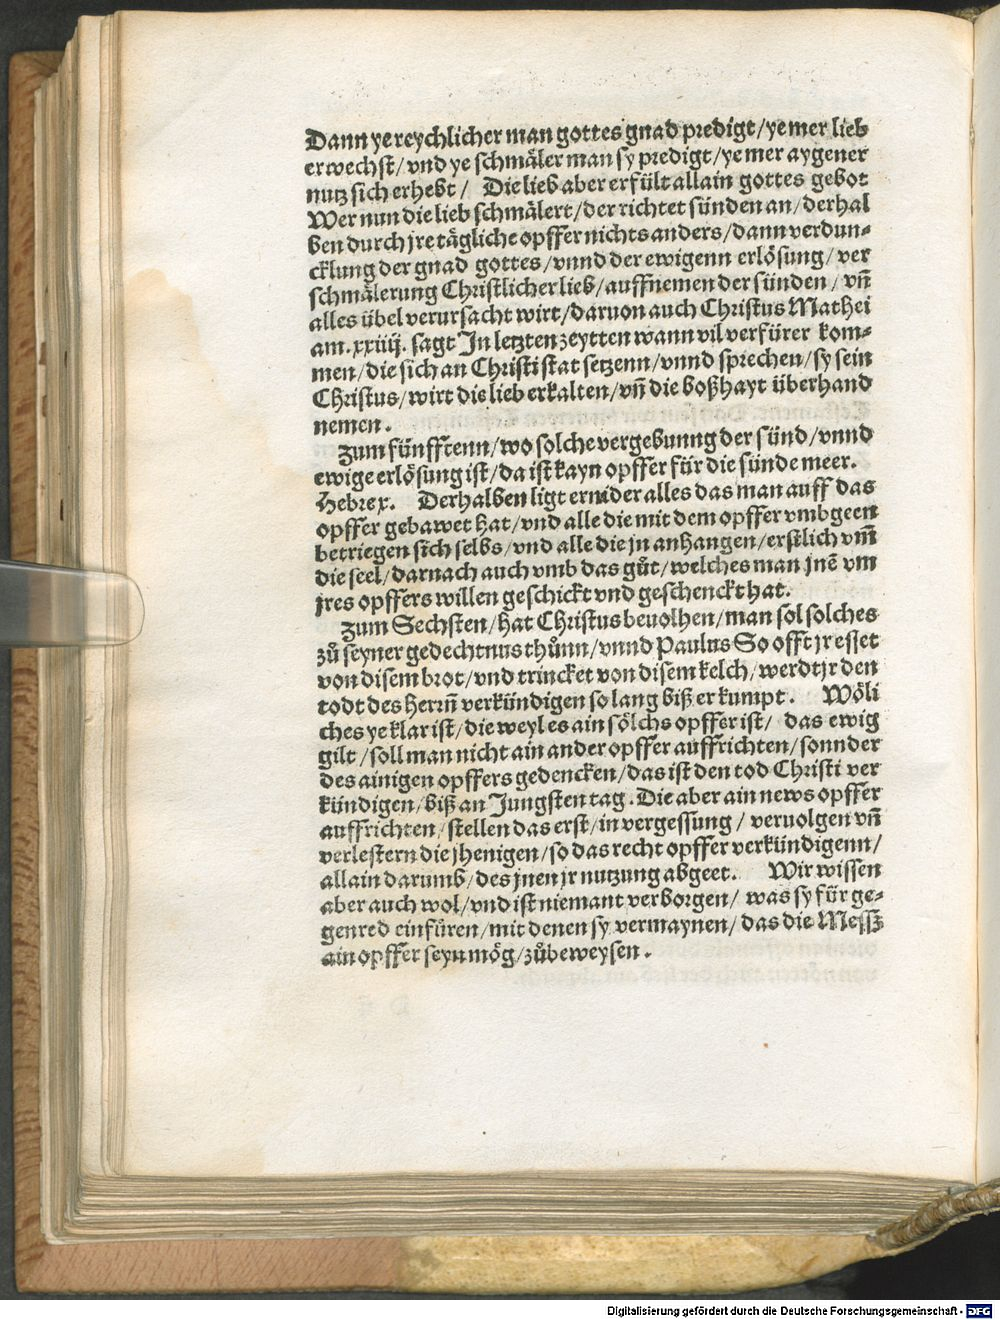 Dann ye reychlicher man gottes gnad predigt/ ye mer lieb
erwechst/ vnd ye schmäler man sy predigt/ ye mer aygener
nutz sich erhebt/ Die lieb aber erfült allain gottes gebot
Wer nun die lieb schmälert/ der richtet sünden an/ derhal
ben durch jre tägliche opffer nichts anders/ dann verdun⸗
cklung der gnad gottes/ vnnd der ewigenn erlösung/ ver
schmälerung Christlicher lieb/ auffnemen der sünden/ vñ
alles übel verursacht wirt/ daruon auch Christus Mathei
am. xxiiij. sagt In letzten zeytten wann vil verfürer kom⸗
men/ die sich an Christi stat setzenn/ vnnd sprechen/ sy sein
Christus/ wirt die lieb erkalten/ vñ die boßhayt überhand
nemen.
Zum fünfftenn/ wo solche vergebunng der sünd/ vnnd
ewige erlösung ist/ da ist kayn opffer für die sünde meer.
Hebre x. Derhalben ligt ernider alles das man auff das
opffer gebawet hat/ vnd alle die mit dem opffer vmbgeen
betriegen sich selbs/ vnd alle die jn anhangen/ erstlich vm̃
die seel/ darnach auch vmb das gůt/ welches man jnẽ vm
jres opffers willen geschickt vnd geschenckt hat.
Zum Sechsten/ hat Christus beuolhen/ man sol solches
zů seyner gedechtnus thůnn/ vnnd Paulus So offt jr esset
von disem brot/ vnd trincket von disem kelch/ werdt jr den
todt des Herrñ verkündigen so lang biß er kumpt. Wöli
ches ye klar ist/ die weyl es ain sölchs opffer ist/ das ewig
gilt/ soll man nicht ain ander opffer auffrichten/ sonnder
des ainigen opffers gedencken/ das ist den tod Christi ver
kündigen/ biß an Jungsten tag. Die aber ain news opffer
auffrichten/ stellen das erst/ in vergessung/ veruolgen vñ
verlestern die jhenigen/ so das recht opffer verkündigenn/
allain darumb/ des jnen jr nutzung abgeet. Wir wissen
aber auch wol/ vnd ist niemant verborgen/ was sy für ge⸗
genred einfüren/ mit denen sy vermaynen/ das die Messz
ain opffer seyn mög/ zůbeweysen.
Digitalisierung gefördert durch die Deutsche Forschungsgemeinschaft - DFG